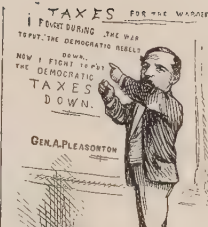 TAXES FOR THE WAR DEB
I FOUGHT DURING THE WAR
TO PUT "THE DEMOCRATIC REBELS
DOWN,
NOW I FIGHT TO PUT
THE DEMOCRATIC
TAXES
DOWN.
GEN. A. PLEASONTON